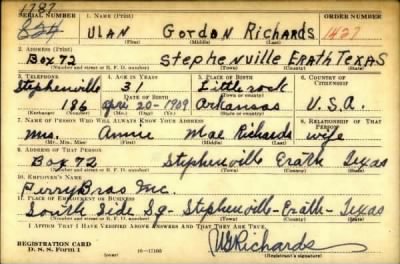 1787
SERIAL NUMBER 1. NAME (Print) ORDER NUMBER
ULAN Gordon Richards 1427
(First) (Middle) (Last)
2. ADDRESS (Print)
Box 72 Stephenville Erath Texas
(Number and street or R. F. D. number) (Town) (County) (State)
3. TELEPHONE 4. AGE IN YEARS 5. PLACE OF BIRTH 6. COUNTRY OF CITIZENSHIP
Stephenville 31 Little rock
DATE OF BIRTH (Town or county)
186 Apri 20-1909 Arkansas U.S.A.
(Exchange) (Number) (Mo.) (Day) (Yr.) (State or country)
7. NAME OF PERSON WHO WILL ALWAYS KNOW YOUR ADDRESS 8. RELATIONSHIP OF THAT PERSON
Mrs. Annie Mae Richards wife
(Mr., Mrs., Miss) (First) (Middle) (Last)
9. ADDRESS OF THAT PERSON
Box 72 Stephenville Erath Texas
(Number and street or R. F. D. number) (Town) (County) (State)
10. EMPLOYER'S NAME
Perry Bros Inc.
11. PLACE OF EMPLOYMENT OR BUSINESS
South Side Sq- Stephenville-Erath-Texas
(Number and street or R. F. D. number) (Town) (County) (State)
I AFFIRM THAT I HAVE VERIFIED ABOVE ANSWERS AND THAT THEY ARE TRUE.
REGISTRATION CARD
D. S. S. Form 1 16-17105 UGRichards